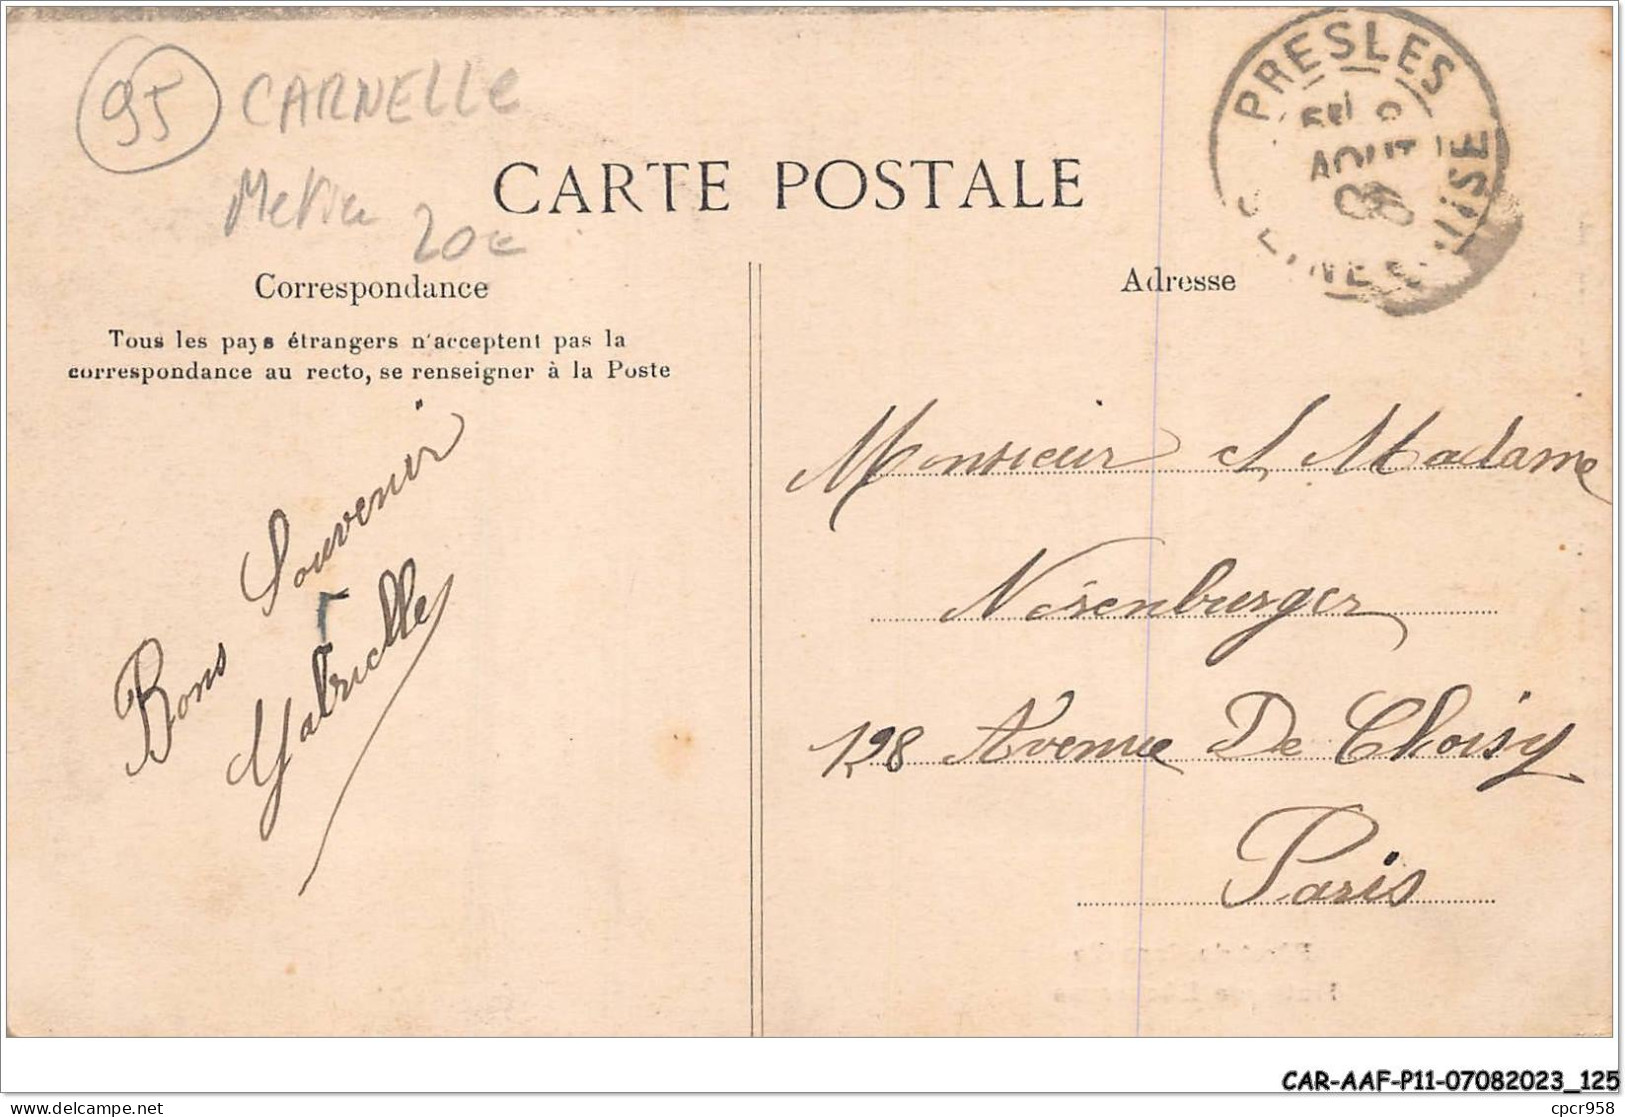 95
CARNELLE
20€
CARTE POSTALE
PRESLES
AOUT
Correspondance
Adresse
Tous les pays étrangers n'acceptent pas la
correspondance au recto, se renseigner à la Poste
Bons Souvenir
Gabrielle
Monsieur et Madame
Nérenburger
128 Avenue De Choisy
Paris
CAR-AAF-P11-07082023_125
cpcr958